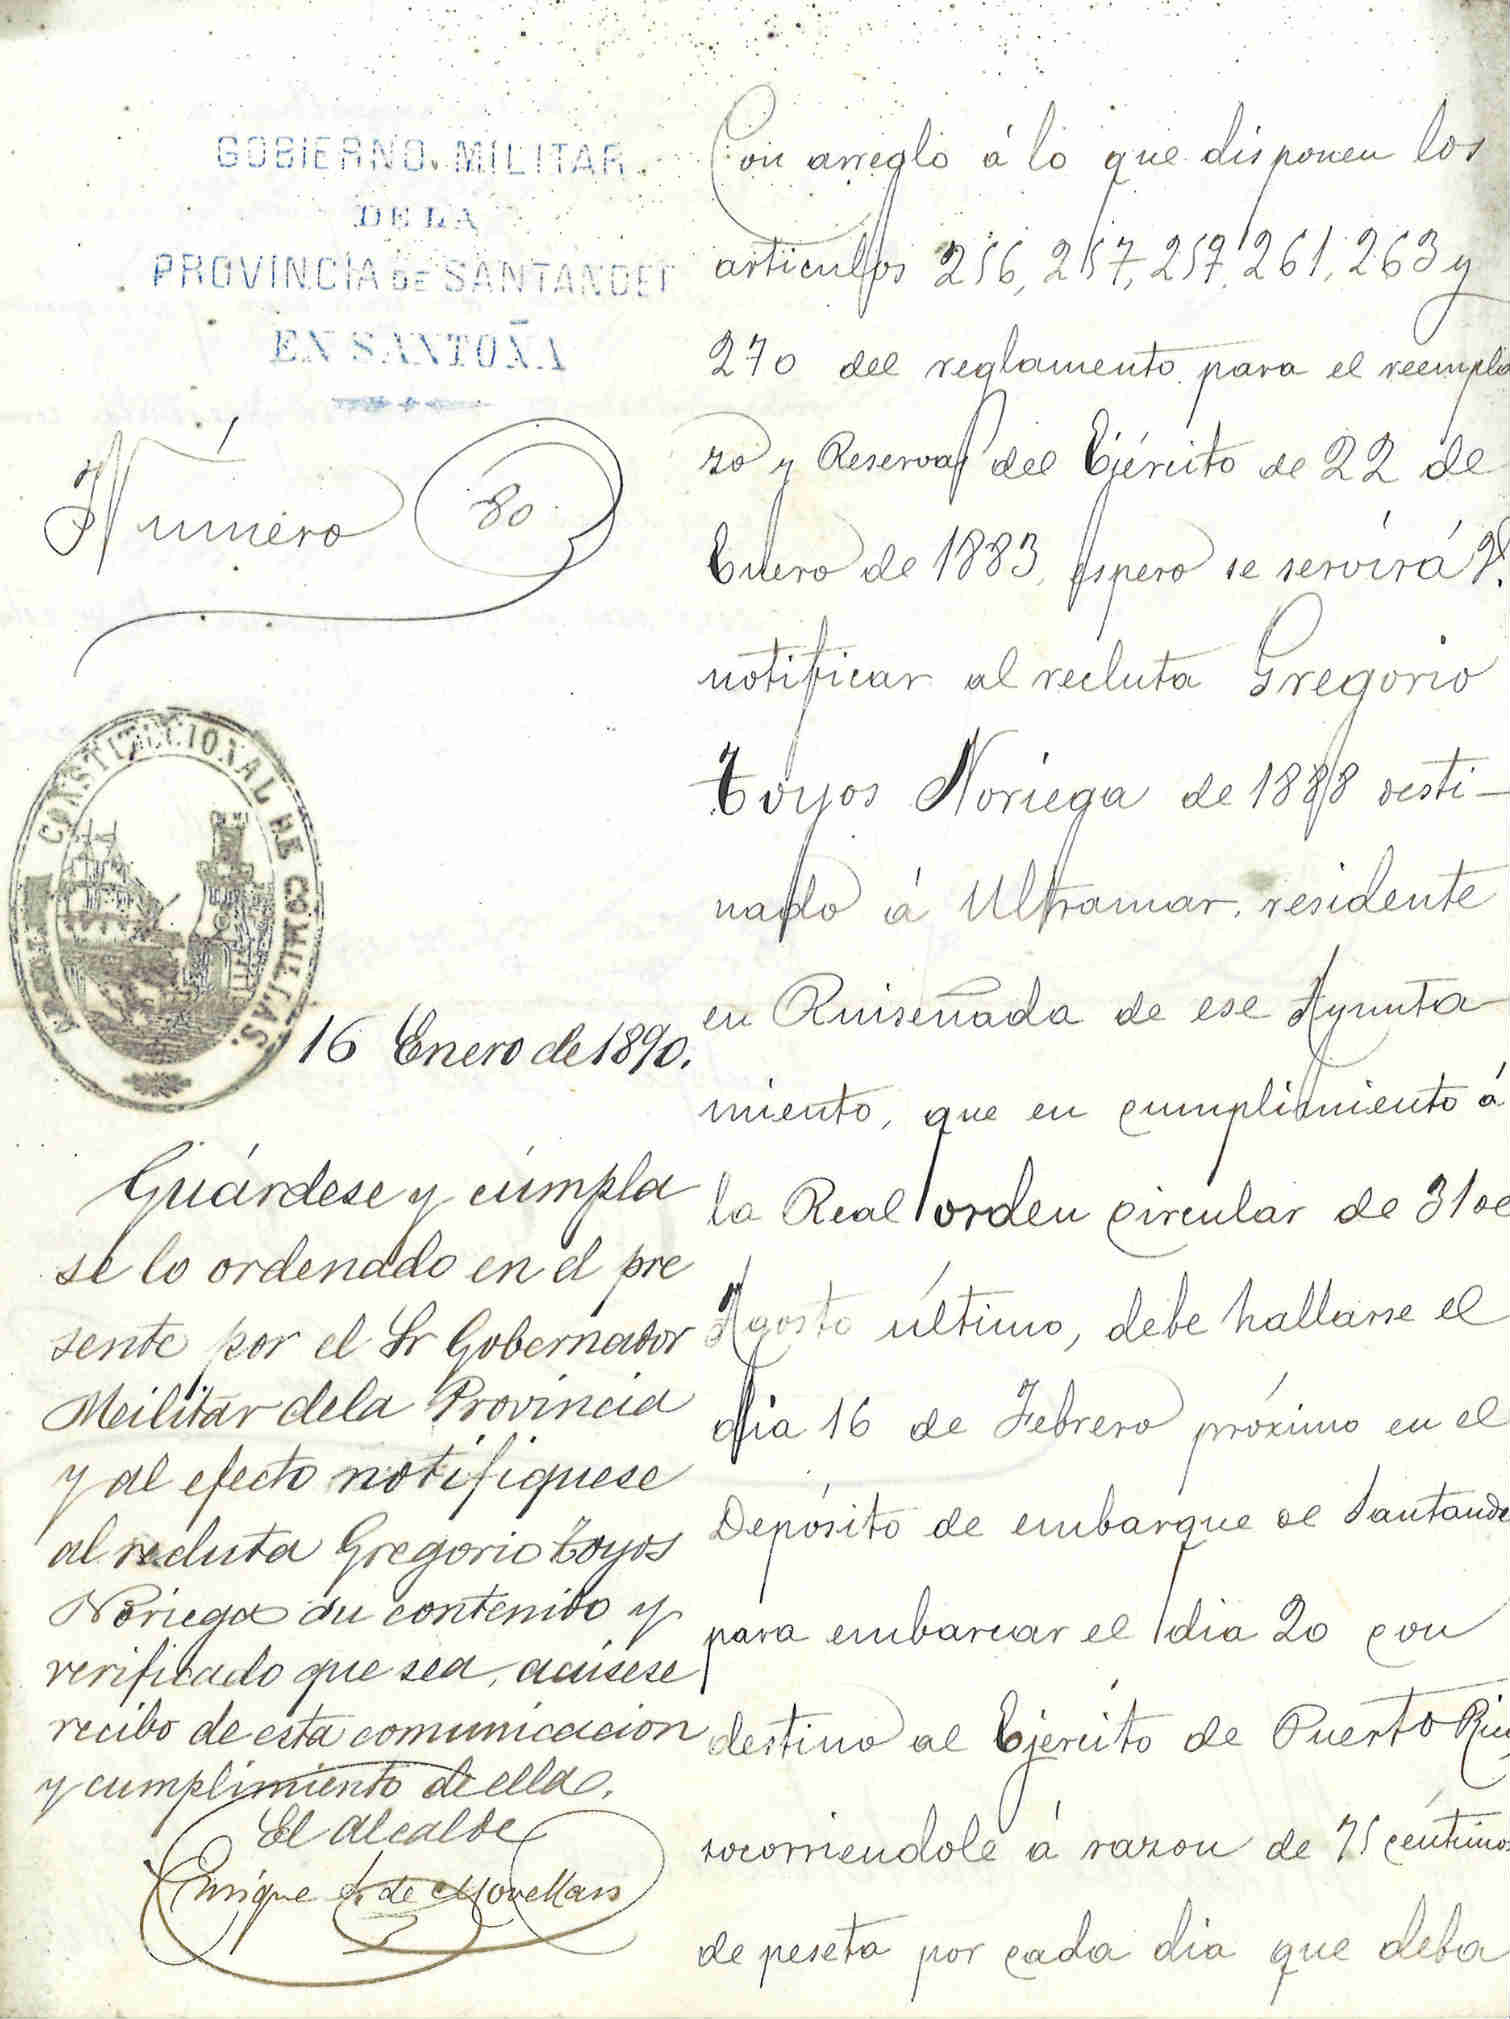 GOBIERNO MILITAR
DE LA
PROVINCIA DE SANTANDER
EN SANTOÑA
Número 80
CONSTITUCIONAL DE COMILLAS.
16 Enero de 1890.
Guárdese y cúmpla
se lo ordenado en el pre
sente por el Sr Gobernador
Militar dela Provincia
y al efecto notifíquese
al recluta Gregorio Toyos
Noriega su contenido y
verificado que sea, acúsese
recibo de esta comunicacion
y cumplimiento de ella.
El Alcalde
Enrique de Movellan
Con arreglo á lo que disponen los
articulos 256, 257, 259, 261, 263 y
270 del reglamento para el reempla
zo y Reservas del Ejército de 22 de
Enero de 1883, espero se servirá V.
notificar al recluta Gregorio
Toyos Noriega de 1888 desti-
nado á Ultramar, residente
en Ruiseñada de ese Ayunta
miento, que en cumplimiento á
la Real orden circular de 31 de
Agosto último, debe hallarse el
dia 16 de Febrero próximo en el
Depósito de embarque de Santande
para embarcar el dia 20 con
destino al Ejército de Puerto Rico
socorriendole á razon de 75 céntimos
de peseta por cada dia que deba